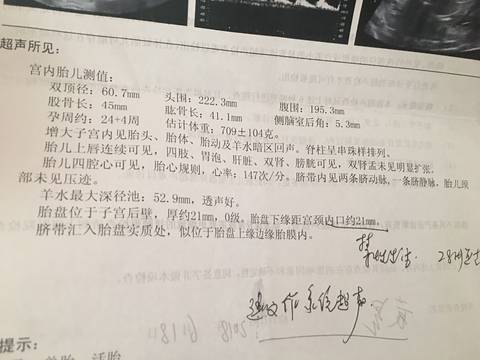 超声所见：
宫内胎儿测值：
双顶径：60.7mm 头围：222.3mm 腹围：195.3mm
股骨长：45mm 肱骨长：41.1mm 侧脑室后角：5.3mm
孕周约：24+4周 估计体重：709±104克。
增大子宫内见胎头、胎体、胎动及羊水暗区回声。脊柱呈串珠样排列。
胎儿上唇连续可见，四肢、胃泡、肝脏、双肾、膀胱可见，双肾盂未见明显扩张。
胎儿四腔心可见，胎心规则，心率：147次/分。脐带内见两条脐动脉，一条脐静脉，胎儿颈
部未见压迹。
羊水最大深径池：52.9mm，透声好。
胎盘位于子宫后壁，厚约21mm，0级。胎盘下缘距宫颈内口约21mm。
脐带汇入胎盘实质处，似位于胎盘上缘边缘胎膜内。
建议作系统超声
提示：